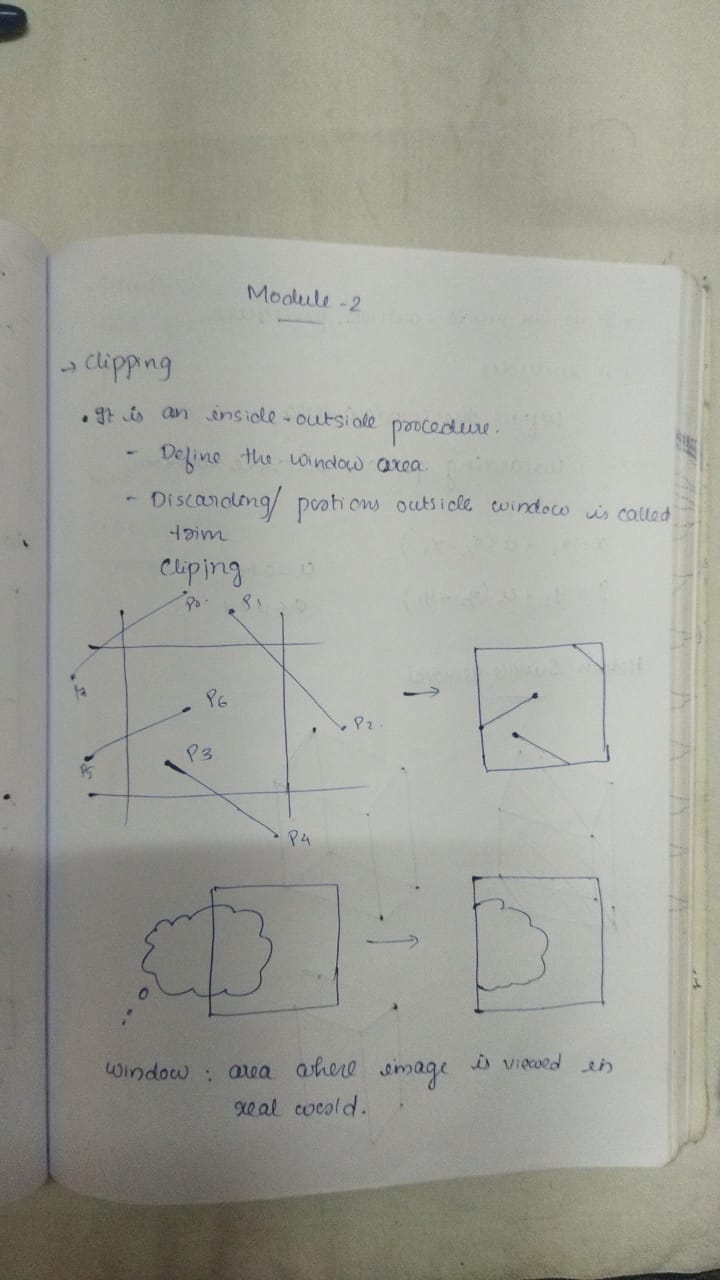 Module - 2
→ Clipping
• It is an inside-outside procedure.
- Define the window area.
- Discarding/ portions outside window is called
trim
Clipjng
P1
P6
P2.
P5
P3
P4
window : area where image is viewed in
real world.